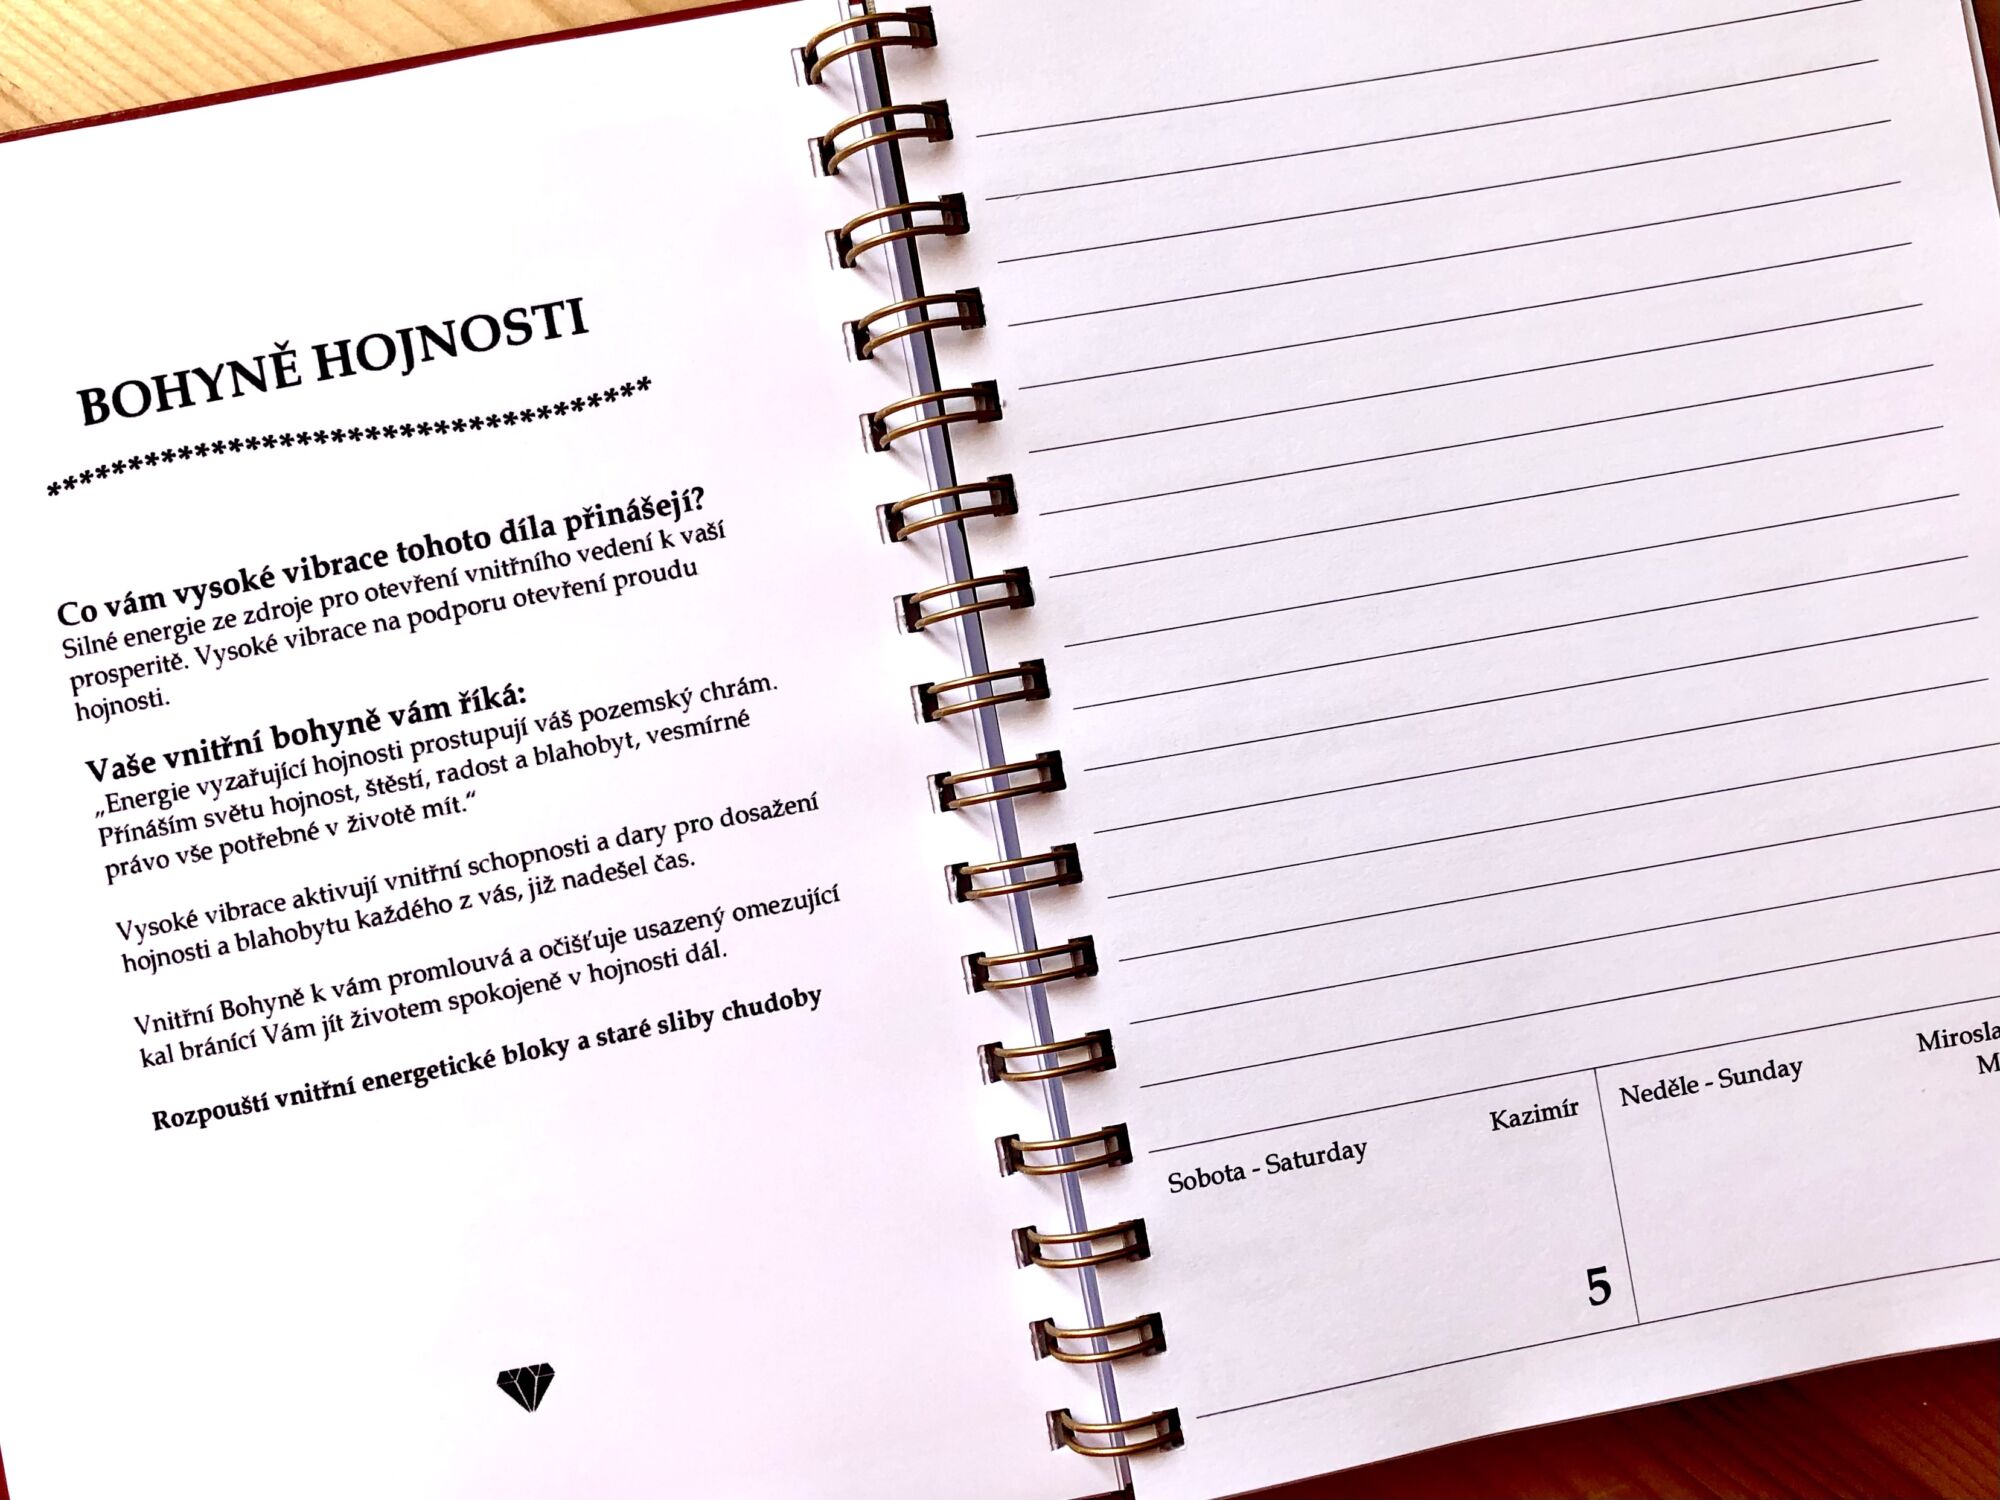 BOHYNĚ HOJNOSTI
*************************************
Co vám vysoké vibrace tohoto díla přinášejí?
Silné energie ze zdroje pro otevření vnitřního vedení k vaší
prosperitě. Vysoké vibrace na podporu otevření proudu
hojnosti.
Vaše vnitřní bohyně vám říká:
„Energie vyzařující hojnosti prostupují váš pozemský chrám.
Přínáším světu hojnost, štěstí, radost a blahobyt, vesmírné
právo vše potřebné v životě mít.“
Vysoké vibrace aktivují vnitřní schopnosti a dary pro dosažení
hojnosti a blahobytu každého z vás, již nadešel čas.
Vnitřní Bohyně k vám promlouvá a očišťuje usazený omezující
kal bránící Vám jít životem spokojeně v hojnosti dál.
Rozpouští vnitřní energetické bloky a staré sliby chudoby
Sobota - Saturday
Kazimír
5
Neděle - Sunday